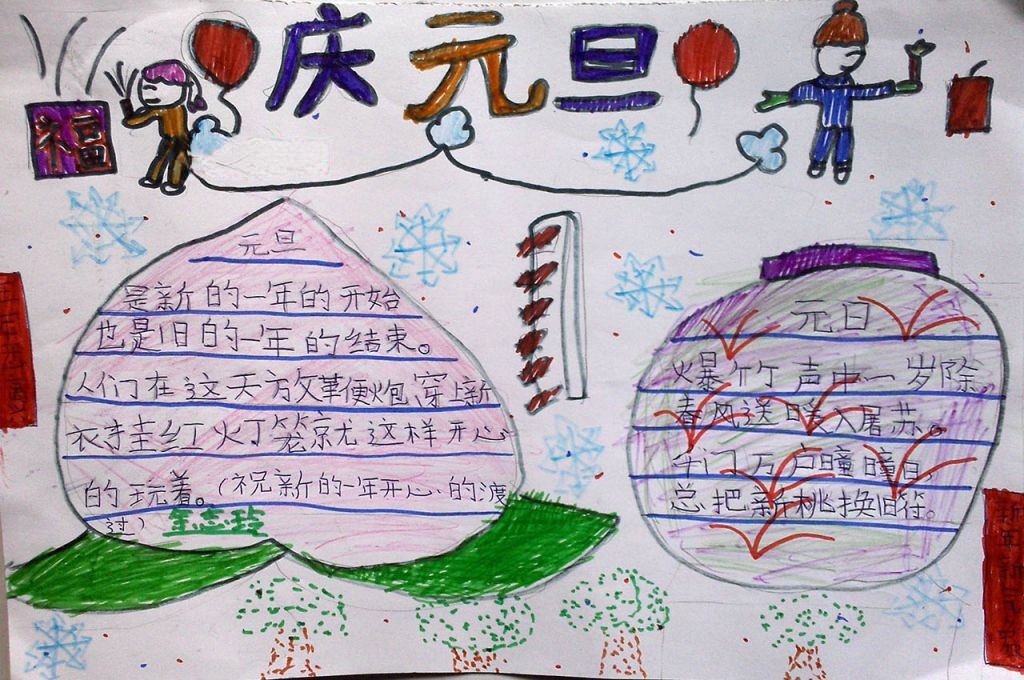 庆元旦
福
元旦
是新的一年的开始
也是旧的一年的结束。
人们在这天放鞭炮、穿上新
衣挂红灯笼就这样开心
的玩着。(祝新的一年开心的渡
过)
元日
爆竹声中一岁除,
春风送暖入屠苏。
千门万户瞳瞳日,
总把新桃换旧符。